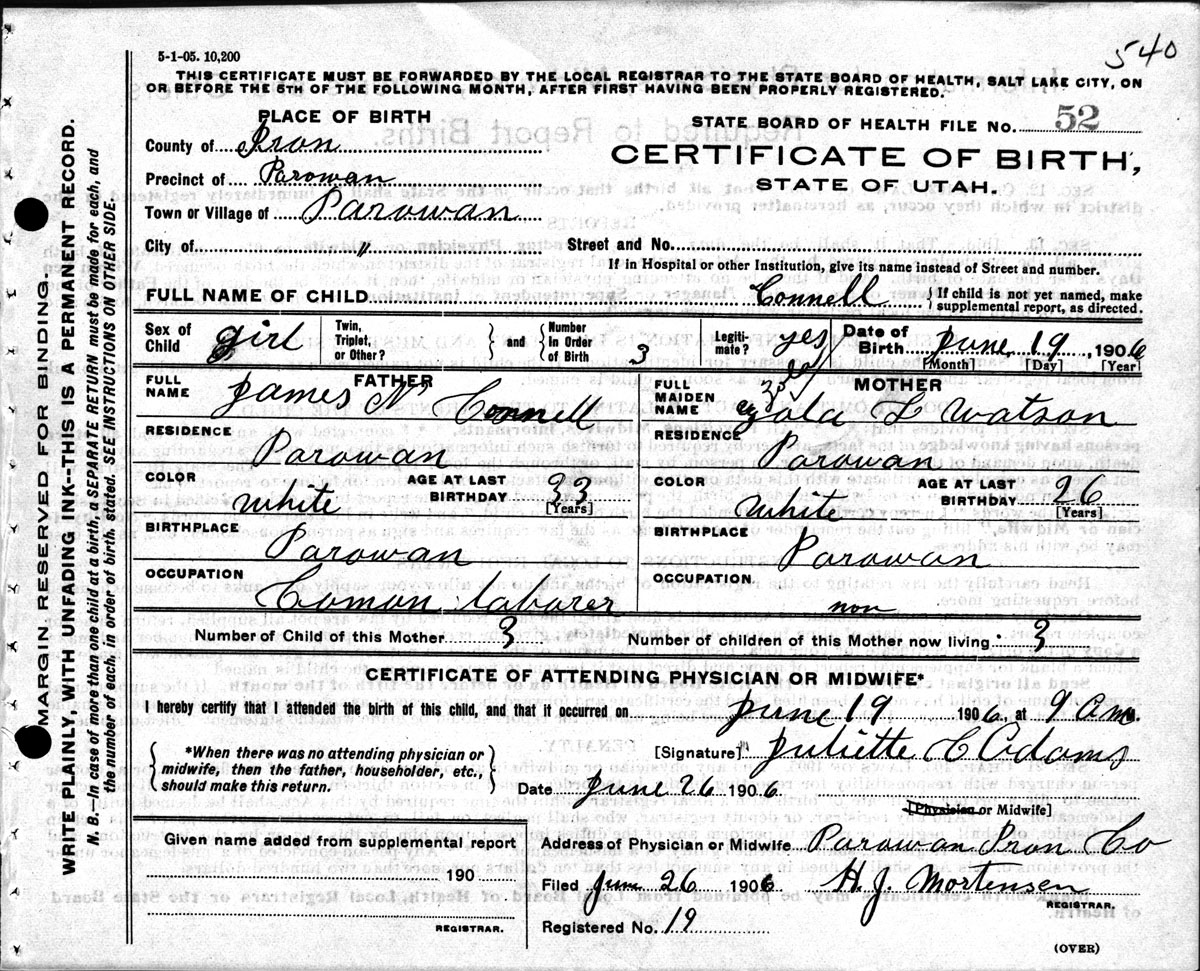 540
5-1-05. 10,200
THIS CERTIFICATE MUST BE FORWARDED BY THE LOCAL REGISTRAR TO THE STATE BOARD OF HEALTH, SALT LAKE CITY, ON
OR BEFORE THE 5TH OF THE FOLLOWING MONTH, AFTER FIRST HAVING BEEN PROPERLY REGISTERED.
PLACE OF BIRTH
STATE BOARD OF HEALTH FILE NO. 52
County of Iron
CERTIFICATE OF BIRTH,
Precinct of Parowan
STATE OF UTAH.
Town or Village of Parowan
City of " Street and No.
If in Hospital or other Institution, give its name instead of Street and number.
FULL NAME OF CHILD Connell { If child is not yet named, make supplemental report, as directed.
Sex of Child girl Twin, Triplet, or Other? } and { Number In Order of Birth 3 Legitimate? yes Date of Birth June 19, 1906
[Month] [Day] [Year]
FULL NAME FATHER James N Connell
FULL MAIDEN NAME MOTHER Zola L Watson
RESIDENCE Parowan
RESIDENCE Parowan
COLOR White AGE AT LAST BIRTHDAY 33 [Years]
COLOR White AGE AT LAST BIRTHDAY 26 [Years]
BIRTHPLACE Parowan
BIRTHPLACE Parowan
OCCUPATION Comon Laborer
OCCUPATION non
Number of Child of this Mother 3 Number of children of this Mother now living 3
CERTIFICATE OF ATTENDING PHYSICIAN OR MIDWIFE*
I hereby certify that I attended the birth of this child, and that it occurred on June 19 1906, at 9 am.
{ *When there was no attending physician or midwife, then the father, householder, etc., should make this return. }
[Signature] Juliette C Adams
Date June 26 1906
[Physician or Midwife]
Given name added from supplemental report
190
REGISTRAR.
Address of Physician or Midwife Parowan Iron Co
Filed June 26 1906 H. J. Mortensen
REGISTRAR.
Registered No. 19
(OVER)
MARGIN RESERVED FOR BINDING.
WRITE PLAINLY, WITH UNFADING INK--THIS IS A PERMANENT RECORD.
N. B.--In case of more than one child at a birth, a SEPARATE RETURN must be made for each, and
the number of each, in order of birth, stated. SEE INSTRUCTIONS ON OTHER SIDE.